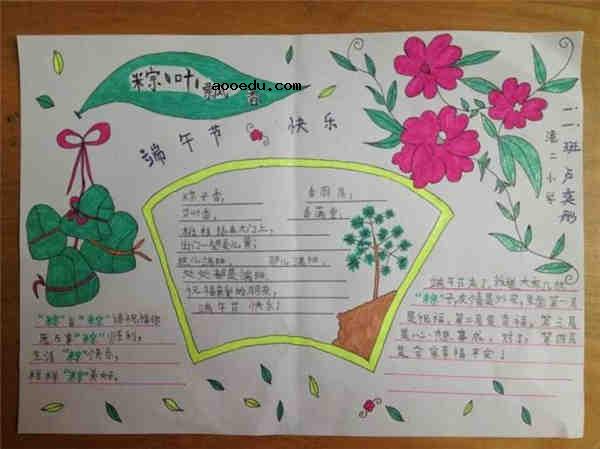 粽叶飘香
aooedu.com
端午节 快乐
二一班卢奕彤
港二小学
粽子香, 香厨房;
艾叶香, 香满堂;
桃枝插在大门上,
出门一望麦儿黄;
这儿端阳, 那儿端阳,
处处都是端阳
祝福亲爱的朋友,
端午节 快乐!
"粽"子" "粽"语祝福你
万事"粽"胜利,
生活"粽"快乐,
样样"粽"美好。
端午节来了,我想大家
"粽"子皮借是外衣,里面第一层
是祝福,第二层是幸福,第三层
是心想事成,对了,第四层
是全家幸福平安!